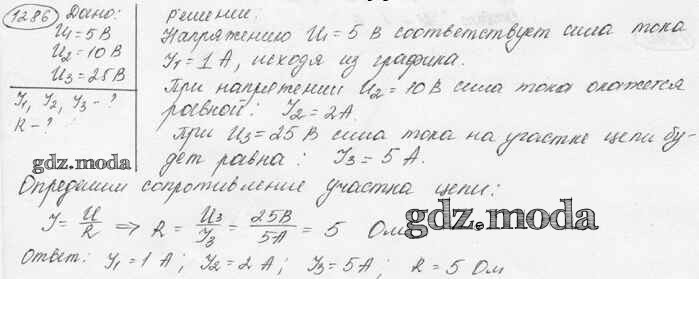 1286 Дано:
U₁ = 5 В
U₂ = 10 В
U₃ = 25 В
I₁, I₂, I₃ - ?
R - ?
Решение:
Напряжению U₁ = 5 В соответствует сила тока
I₁ = 1 А, исходя из графика.
При напряжении U₂ = 10 В сила тока окажется
равной: I₂ = 2 А.
При U₃ = 25 В сила тока на участке цепи бу-
дет равна: I₃ = 5 А.
gdz.moda
Определим сопротивление участка цепи:
I = U/R ⇒ R = U₃/I₃ = 25В/5А = 5 Ом
gdz.moda
Ответ: I₁ = 1 А; I₂ = 2 А; I₃ = 5 А; R = 5 Ом